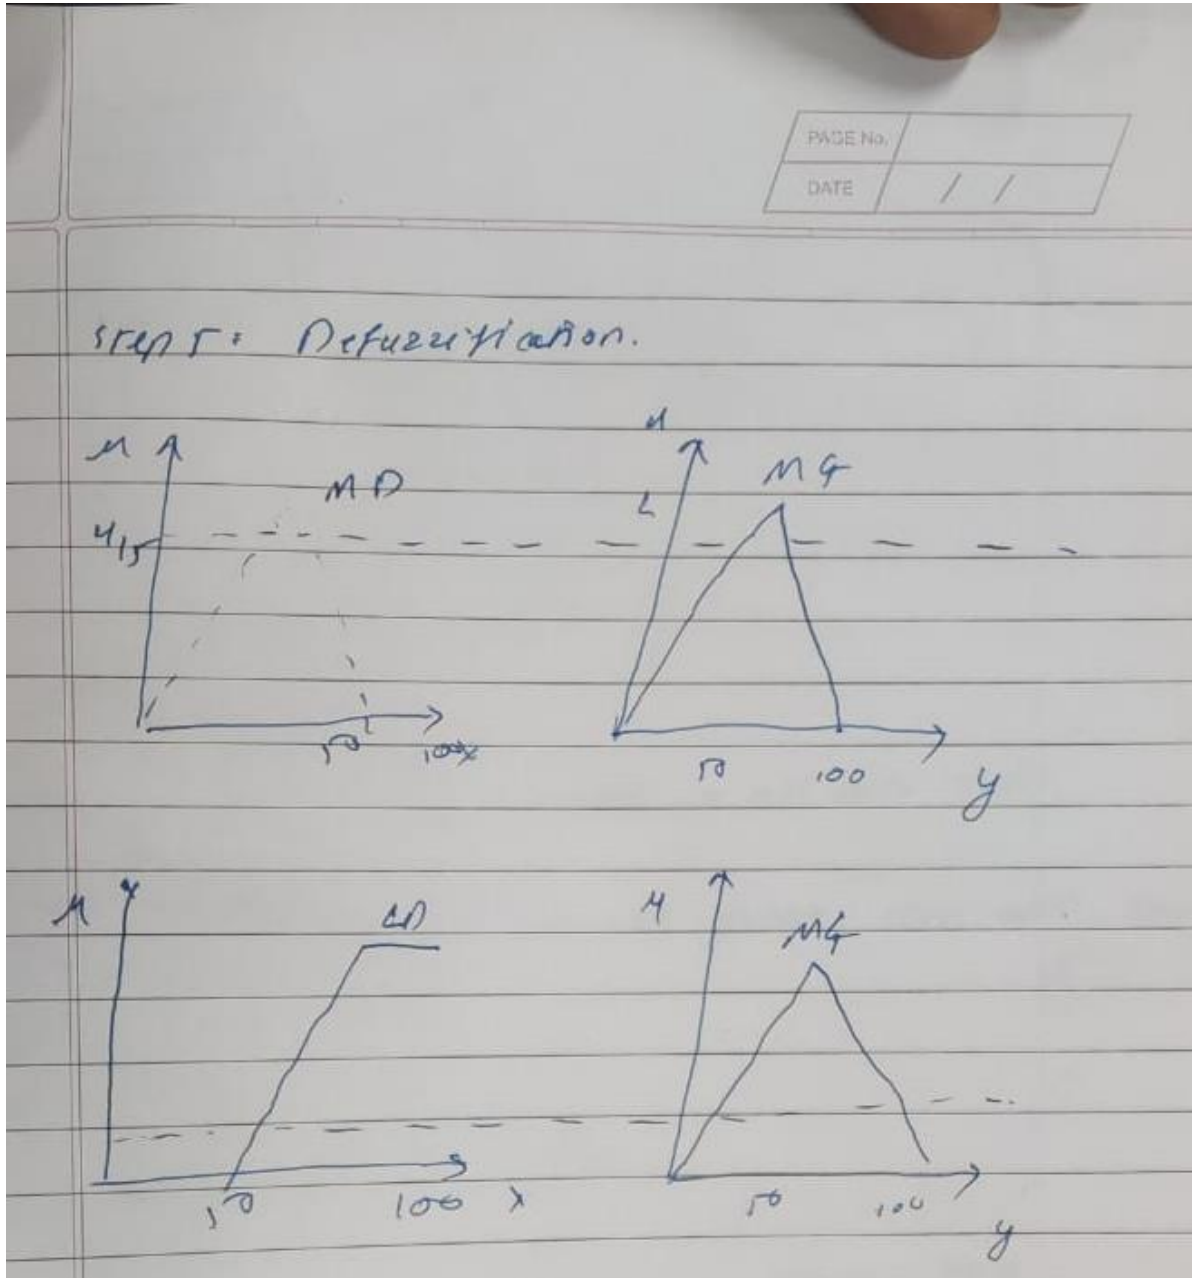 PAGE No.
DATE / /
Step 5: Defuzzification.
μ MD
4/5
50 100 x
μ MG
50 100 y
μ LD
50 100 x
μ MG
50 100 y